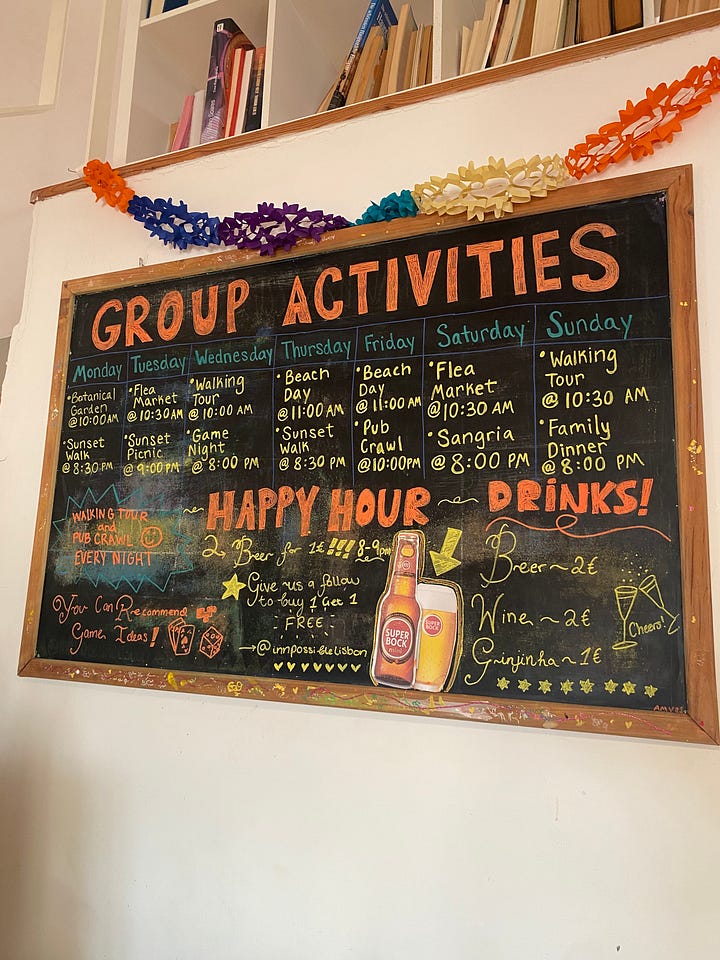 GROUP ACTIVITIES
Monday Tuesday Wednesday Thursday Friday Saturday Sunday
• Botanical
Garden
@ 10:00 AM
• Sunset
Walk
@ 8:30 PM
• Flea
Market
@ 10:30 AM
• Sunset
Picnic
@ 9:00 PM
• Walking
Tour
@ 10:00 AM
• Game
Night
@ 8:00 PM
• Beach
Day
@ 11:00 AM
• Sunset
Walk
@ 8:30 PM
• Beach
Day
@ 11:00 AM
• Pub
Crawl
@ 10:00 PM
• Flea
Market
@ 10:30 AM
• Sangria
@ 8:00 PM
• Walking
Tour
@ 10:30 AM
• Family
Dinner
@ 8:00 PM
WALKING TOUR
and
PUB CRAWL
EVERY NIGHT
You Can Recommend
Game Ideas!
HAPPY HOUR
2 Beer for 1€ !!! 8-9pm
Give us a follow
to buy 1 Get 1
FREE
→ @innpossiblelisbon
SUPER
BOCK
mini
SUPER
BOCK
DRINKS!
Beer ~ 2€
Wine ~ 2€
Ginjinha ~ 1€
Cheers!